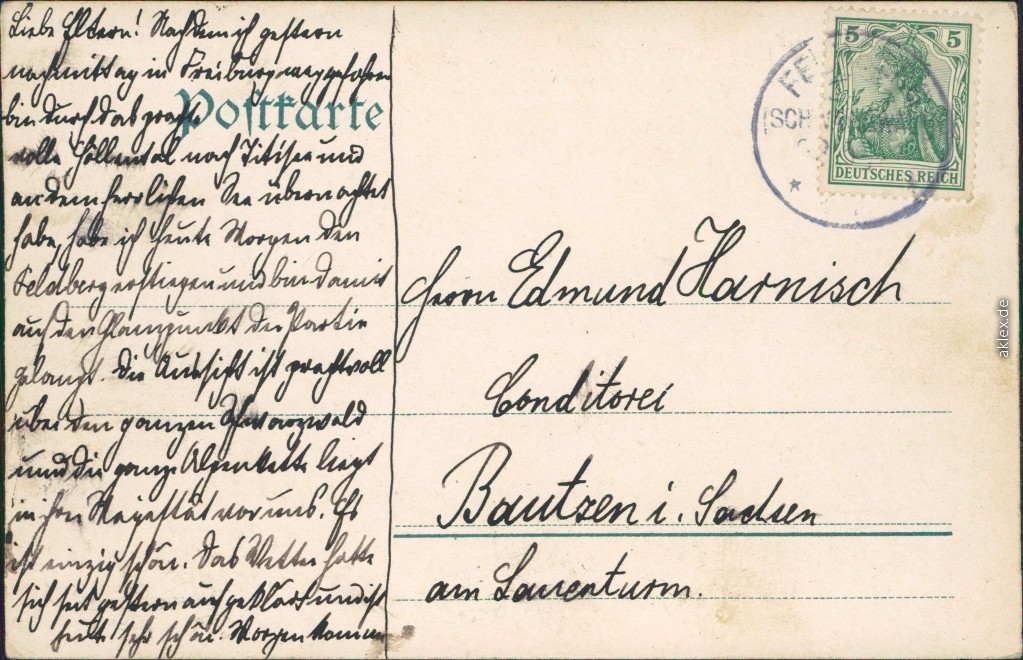 Liebe Eltern! Nachdem ich gestern
nachmittag in Freiburg weggefahren
bin durch das pracht
volle Höllental nach Titisee und
an dem herrlichen See übernachtet
habe, habe ich heute Morgen den
Feldberg erstiegen und bin damit
auf den Glanzpunkt der Partie
gelangt. Die Aussicht ist prachtvoll
über den ganzen Schwarzwald
und die ganze Alpenkette liegt
in ihrer Majestät vor uns. Es
ist einzig schön. Das Wetter hatte
sich seit gestern aufgeklärt und ist
heute sehr schön. Morgen kommen
Postkarte
5 5
DEUTSCHES REICH
FE
(SCH
Herrn Edmund Harnisch
Conditorei
Bautzen i. Sachsen
am Lauenturm.
aklex.de